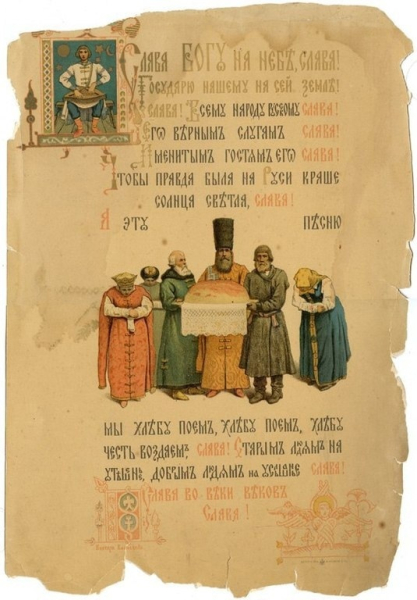 СЛАВА БОГУ НА НЕБѢ, СЛАВА!
ГОСУДАРЮ НАШЕМУ НА СЕЙ ЗЕМЛѢ!
СЛАВА! ВСЕМУ НАРОДУ РУСКОМУ СЛАВА!
ЕГО ВѢРНЫМЪ СЛУГАМЪ СЛАВА!
ИМЕНИТЫМЪ ГОСТЯМЪ ЕГО СЛАВА!
ЧТОБЫ ПРАВДА БЫЛА НА РУСИ КРАШЕ
СОЛНЦА СВѢТЛА, СЛАВА!
А ЭТУ ПѢСНЮ
МЫ ХЛѢБУ ПОЕМЪ, ХЛѢБУ ПОЕМЪ, ХЛѢБУ
ЧЕСТЬ ВОЗДАЕМЪ СЛАВА! СТАРЫМЪ ЛЮДЯМЪ НА
ДОБРЫМЪ ЛЮДЯМЪ НА СЛАВА!
СЛАВА ВО ВѢКИ ВѢКОВЪ
СЛАВА!